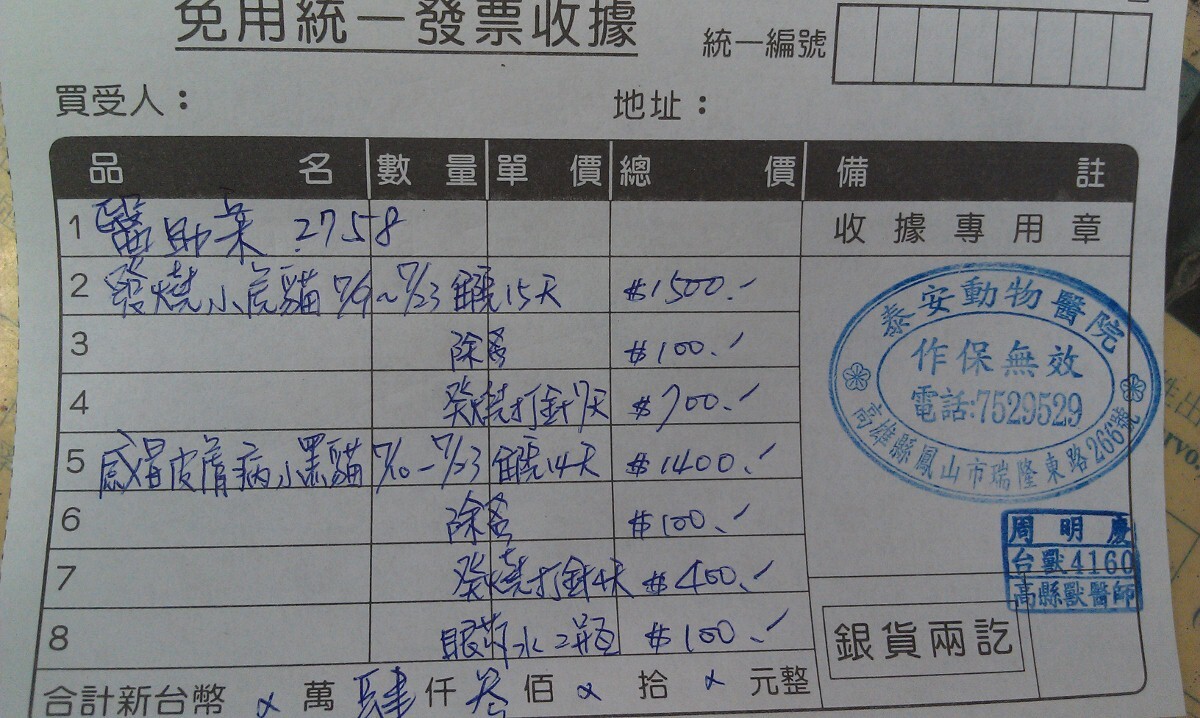 免用統一發票收據
統一編號
買受人：
地址：
品名 數量 單價 總價 備註
1 醫助案 2758
收據專用章
2 發燒小虎貓 7/9~7/23 住院15天 $1500.
3 除蚤 $100.
4 發燒打針7天 $700.
5 感冒皮膚病小黑貓 7/10-7/23 住院14天 $1400.
6 除蚤 $100.
7 發燒打針4天 $400.
8 眼藥水2瓶 $100.
泰安動物醫院
作保無效
電話:7529529
高雄縣鳳山市瑞隆東路266號
周明慶
台獸4160
高縣獸醫師
銀貨兩訖
合計新台幣 x 萬 肆 仟 叁 佰 x 拾 x 元整